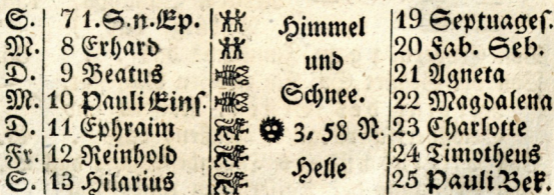 S. 7 1. S. n. Ep. Himmel 19 Septuages.
M. 8 Erhard und 20 Fab. Seb.
D. 9 Beatus 21 Agneta
M. 10 Pauli Eins. Schnee. 22 Magdalena
D. 11 Ephraim 3, 58 N. 23 Charlotte
Fr. 12 Reinhold 24 Timotheus
S. 13 Hilarius Helle 25 Pauli Bek.